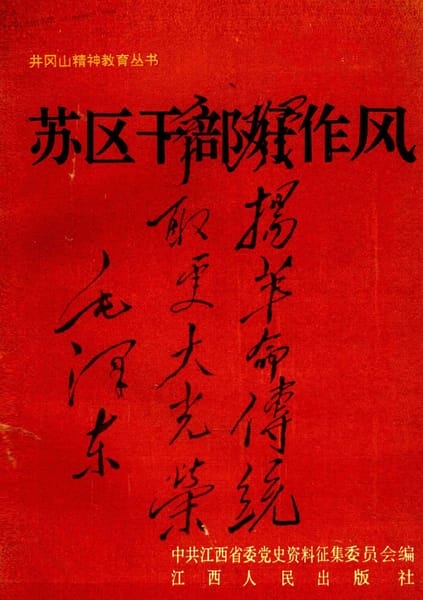 井冈山精神教育丛书
苏区干部好作风
揚革命傳統
取更大光榮
毛泽东
中共江西省委党史资料征集委员会编
江西人民出版社